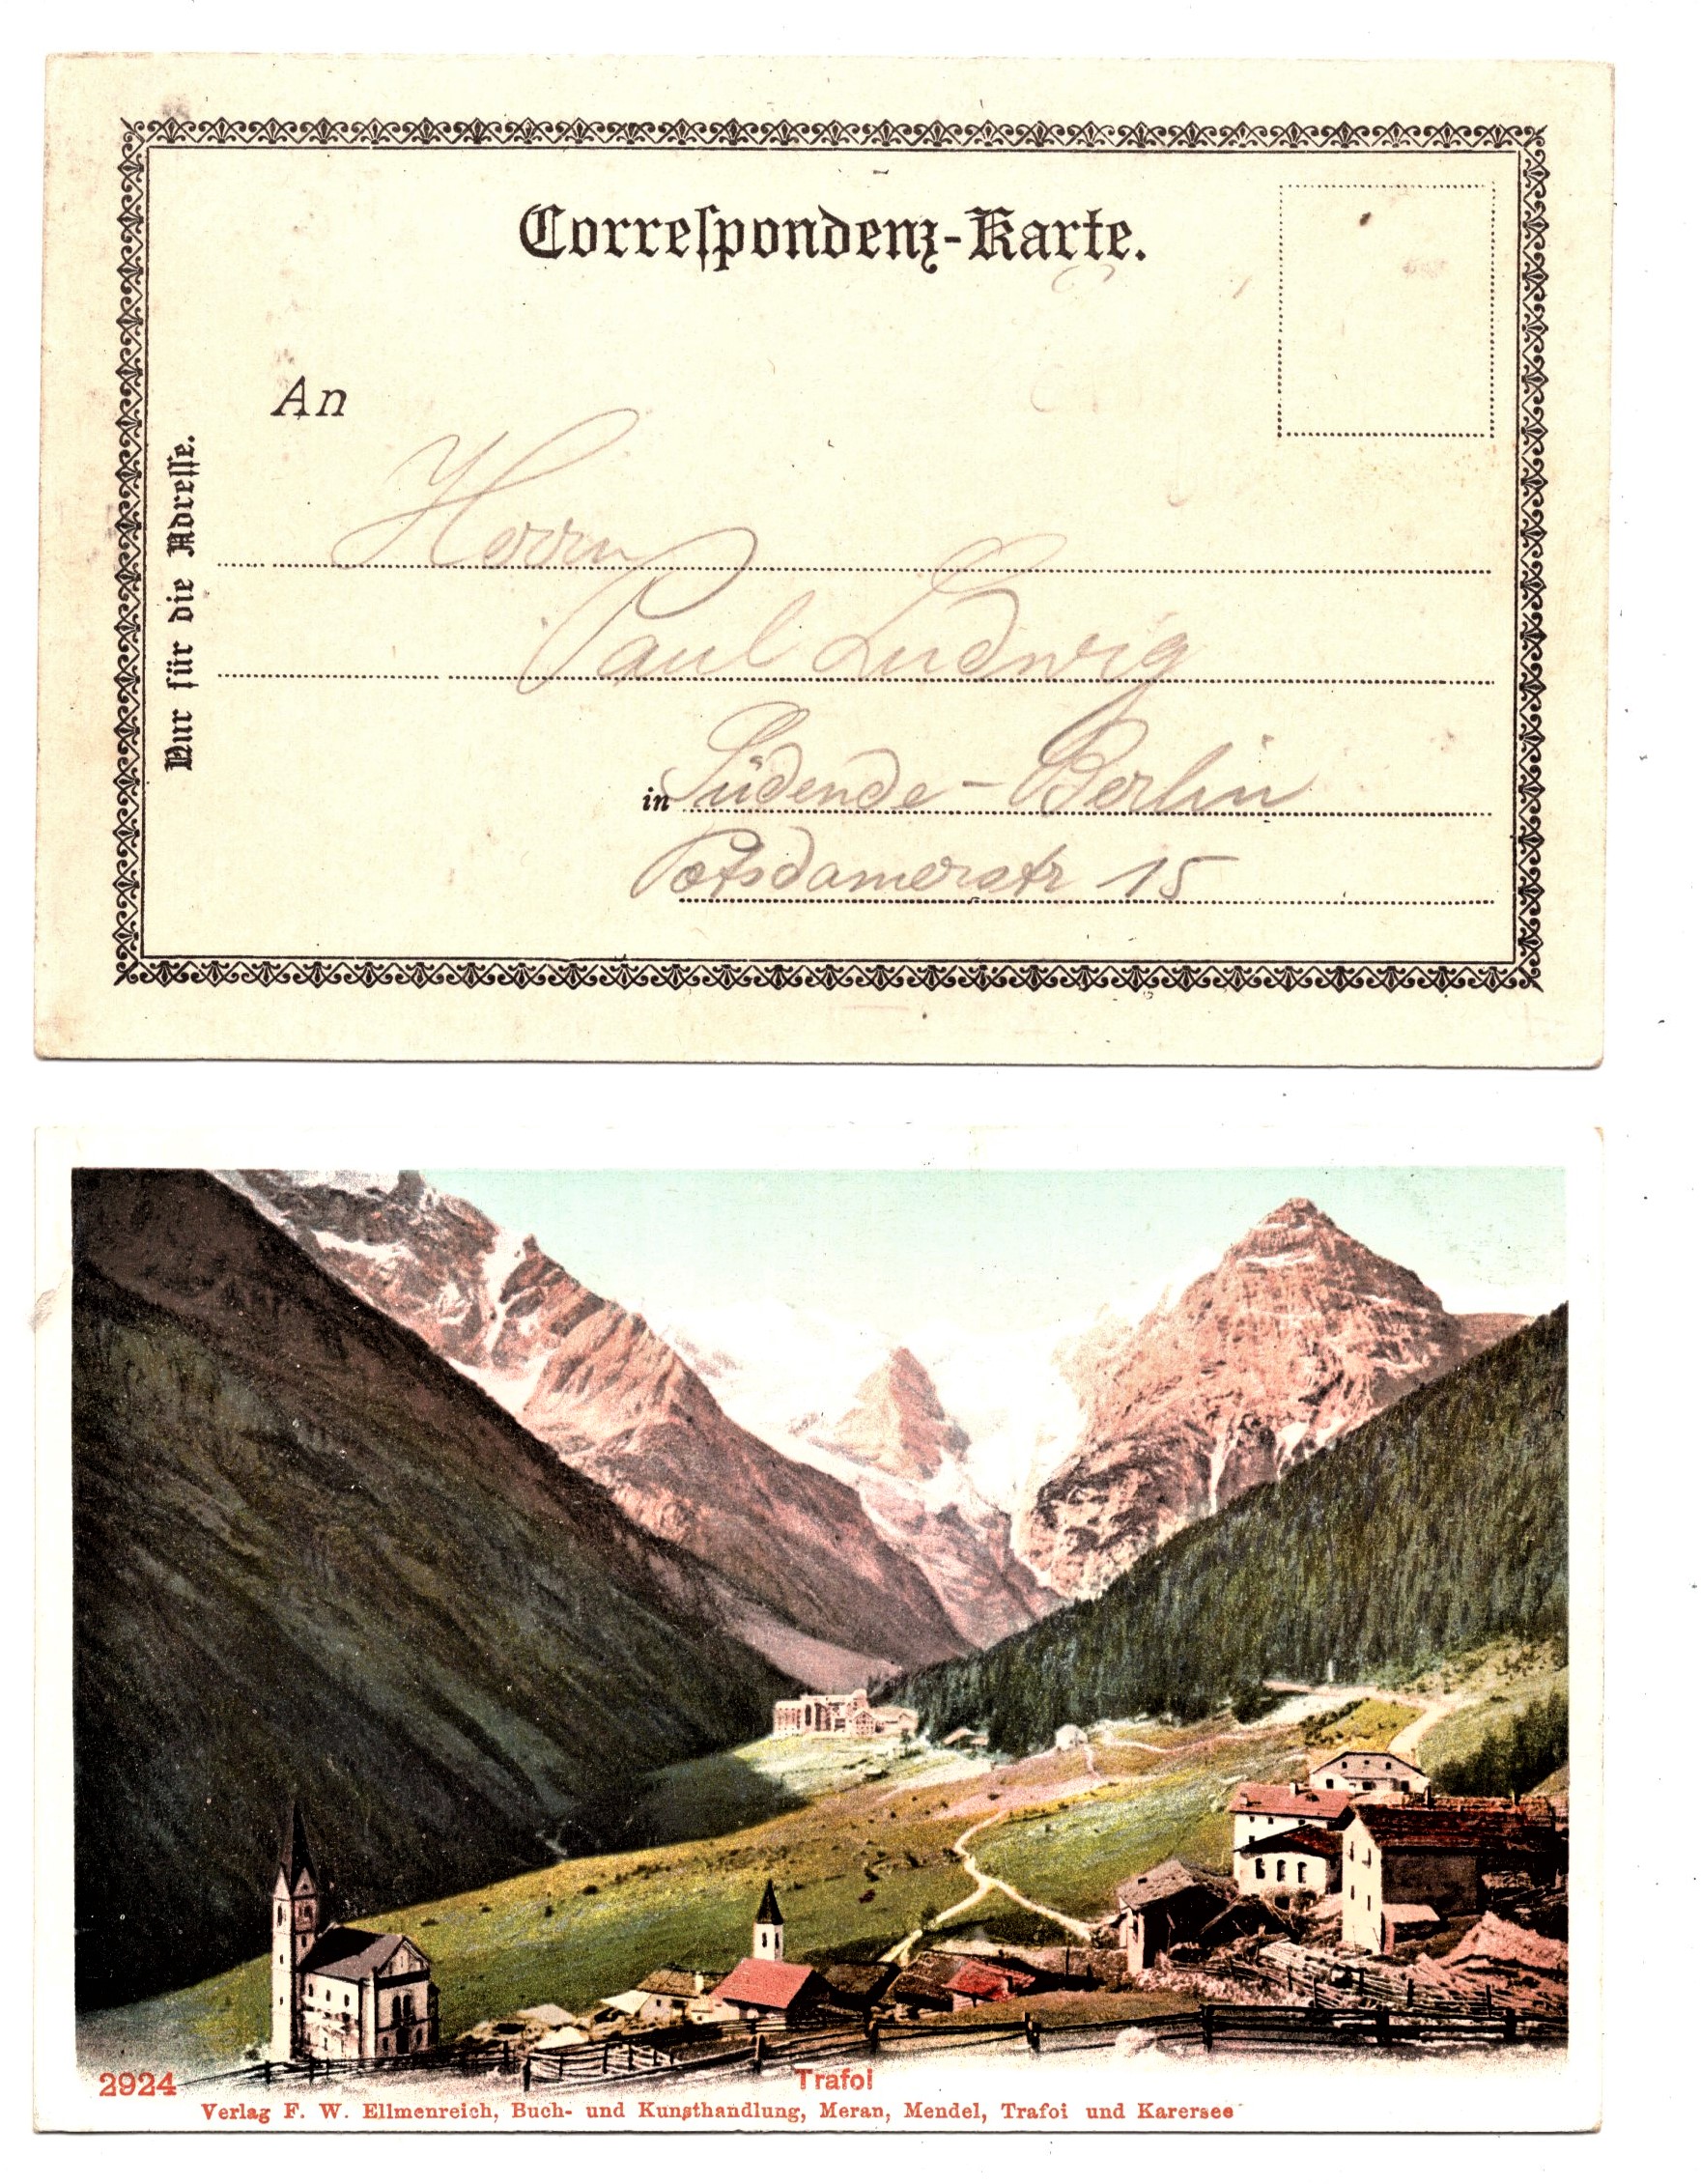 Correſpondenz-Karte.
An
Nur für die Adreſſe.
Herrn
Paul Ludwig
in Südende-Berlin
Potsdamerstr 15
2924
Trafoi
Verlag F. W. Ellmenreich, Buch- und Kunsthandlung, Meran, Mendel, Trafoi und Karersee